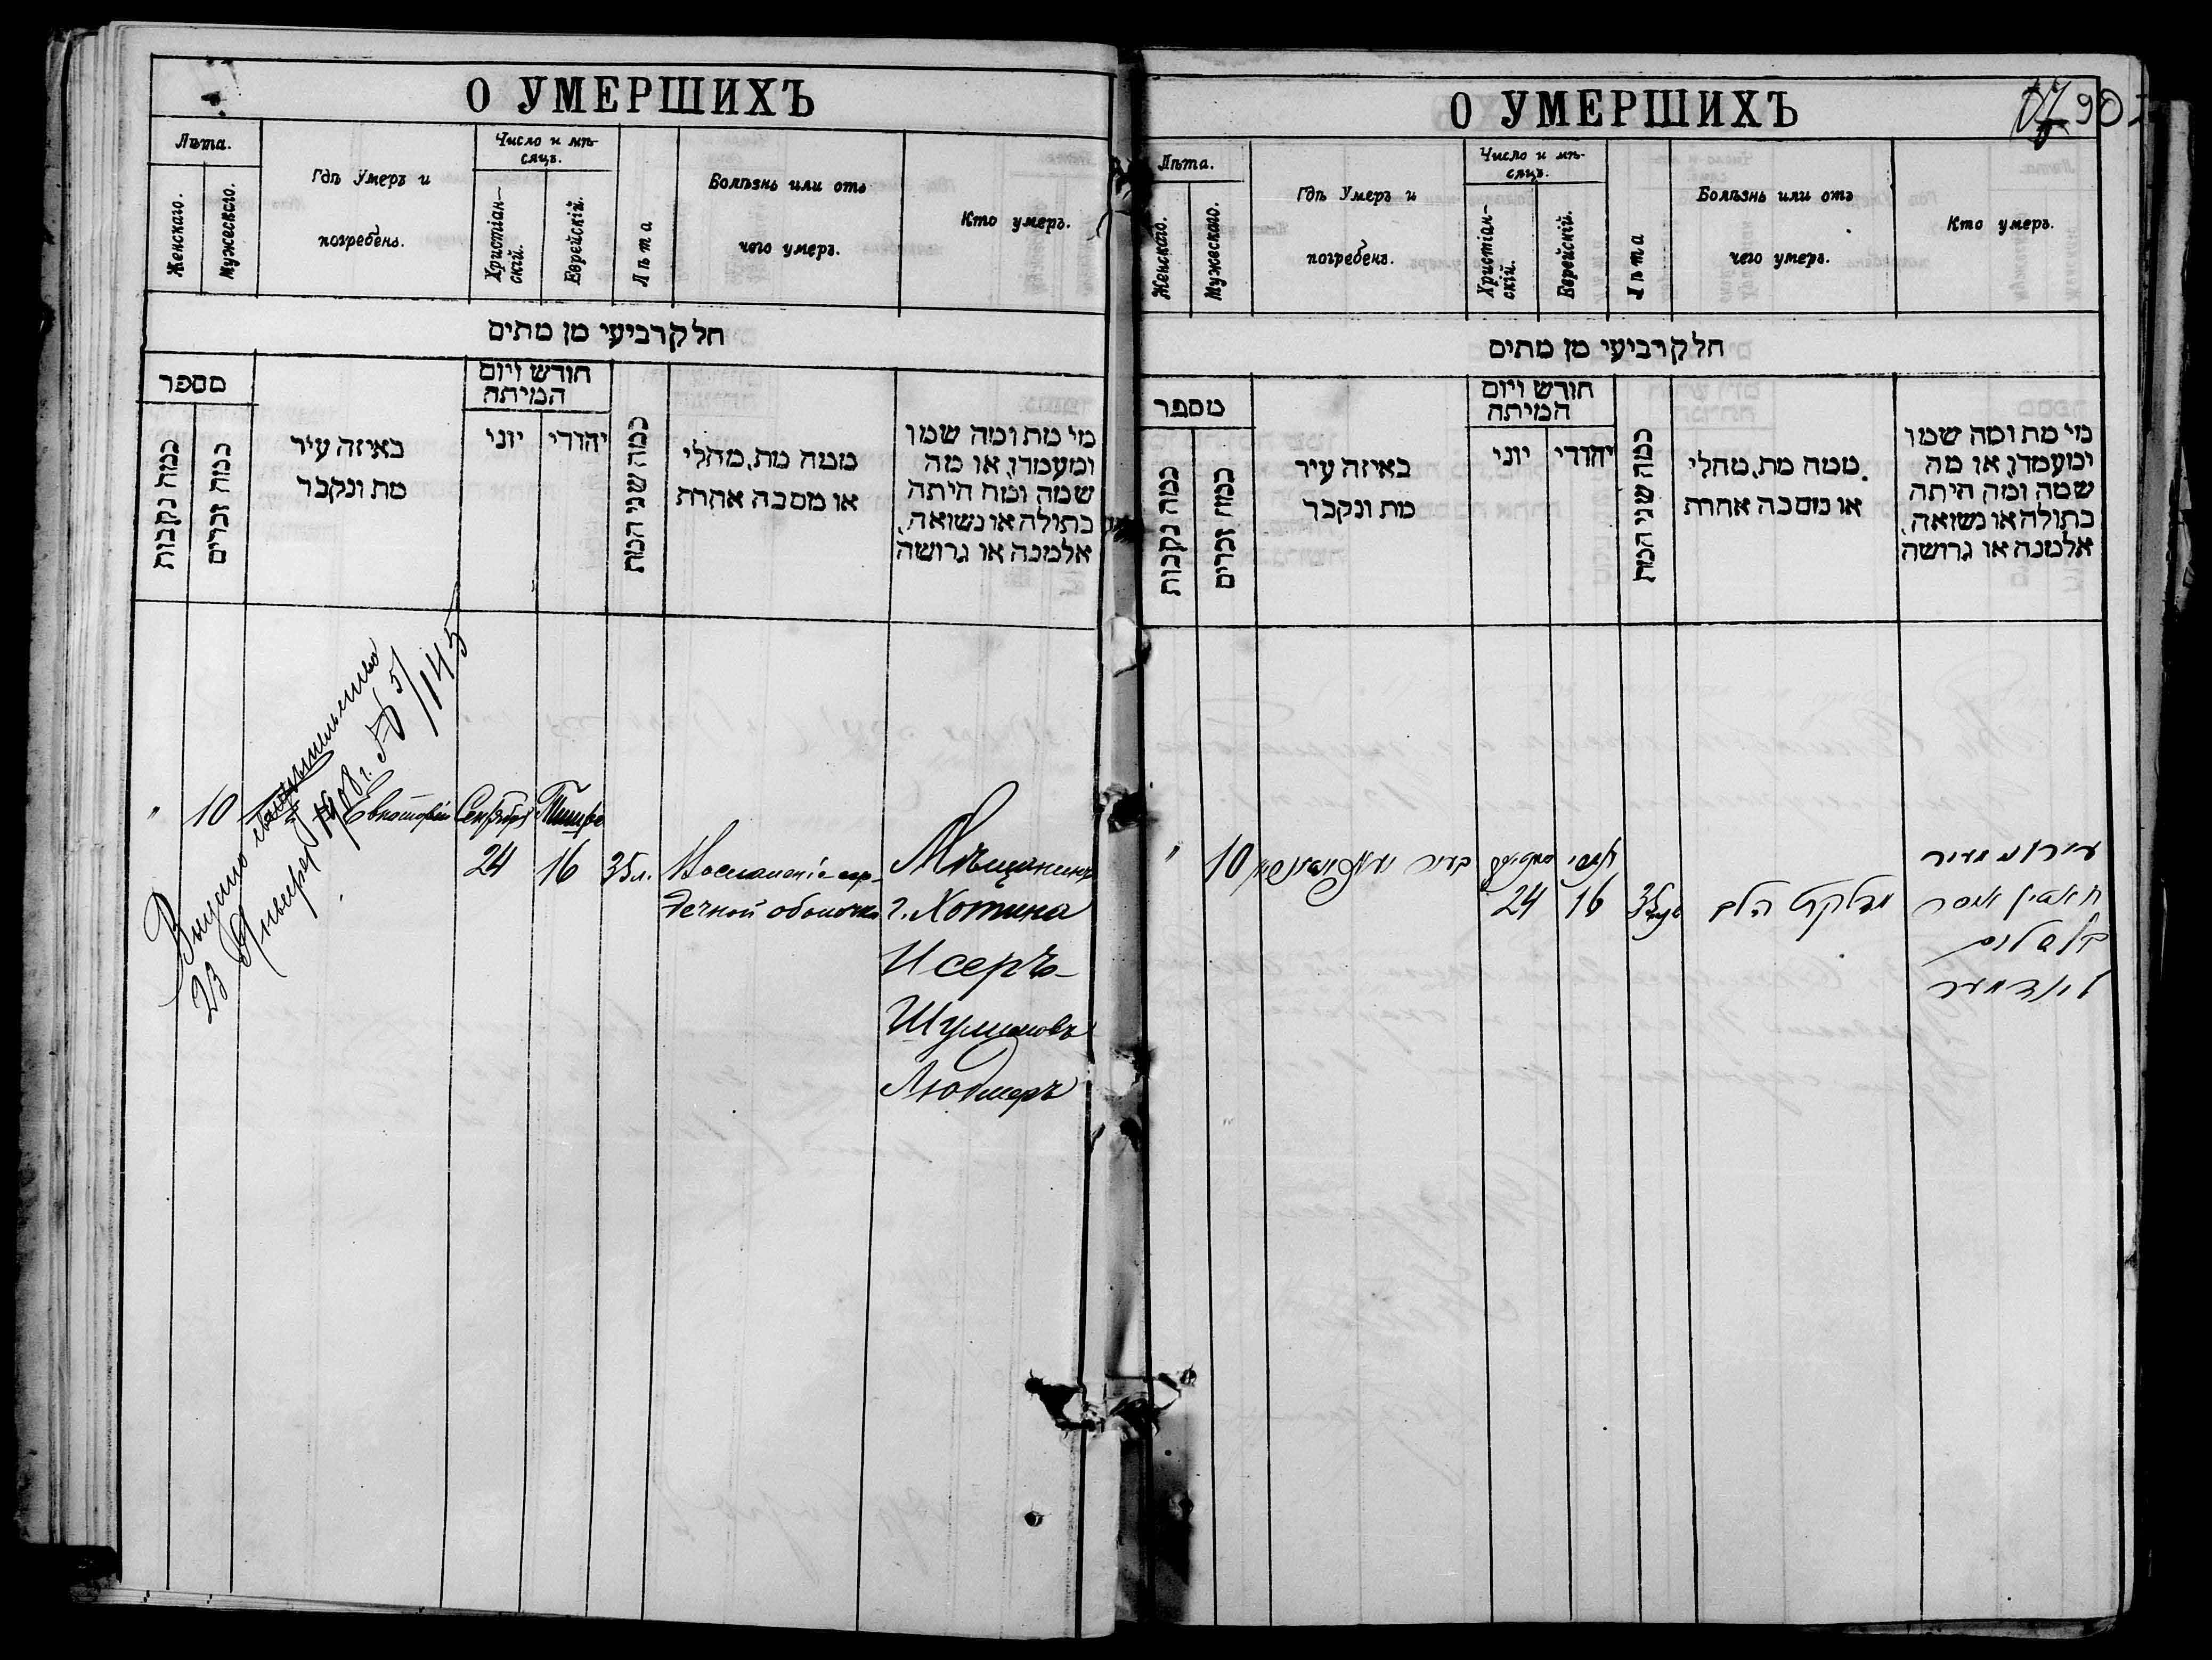 О УМЕРШИХЪ
Лѣта.
Женскаго.
Мужескаго.
Гдѣ Умеръ и
погребенъ.
Число и мѣ-
сяцъ.
Христіан-
скій.
Еврейскій.
Лѣта
Болѣзнь или отъ
чего умеръ.
Кто умеръ.
חלק רביעי מן מתים
מספר
כמה נקבות
כמה זכרים
באיזה עיר
מת ונקבר
חודש ויום
המיתה
יוני
יהודי
כמה שני המת
ממה מת, מחלי
או מסבה אחרת
מי מת ומה שמו
ומעמדו, או מה
שמה ומה היתה
בתולה או נשואה,
אלמנה או גרושה
Выдано свидѣтельство
23 Января 1908 г. № 5/145
" 10
Евпаторіи
Сентября
24
Тишре
16
35 л.
Воспаленіе сер-
дечной оболочки
Мѣщанинъ
г. Хотина
Исеръ
Шулимовъ
О УМЕРШИХЪ
90
Лѣта.
Женскаго.
Мужескаго.
Гдѣ Умеръ и
погребенъ.
Число и мѣ-
сяцъ.
Христіан-
скій.
Еврейскій.
Лѣта
Болѣзнь или отъ
чего умеръ.
Кто умеръ.
חלק רביעי מן מתים
מספר
כמה נקבות
כמה זכרים
באיזה עיר
מת ונקבר
חודש ויום
המיתה
יוני
יהודי
כמה שני המת
ממה מת, מחלי
או מסבה אחרת
מי מת ומה שמו
ומעמדו, או מה
שמה ומה היתה
בתולה או נשואה,
אלמנה או גרושה
" 10
בעיר
24
תשרי
16
35
הלב
עירוני מעיר
חאטין איסר
ב"ר שלום